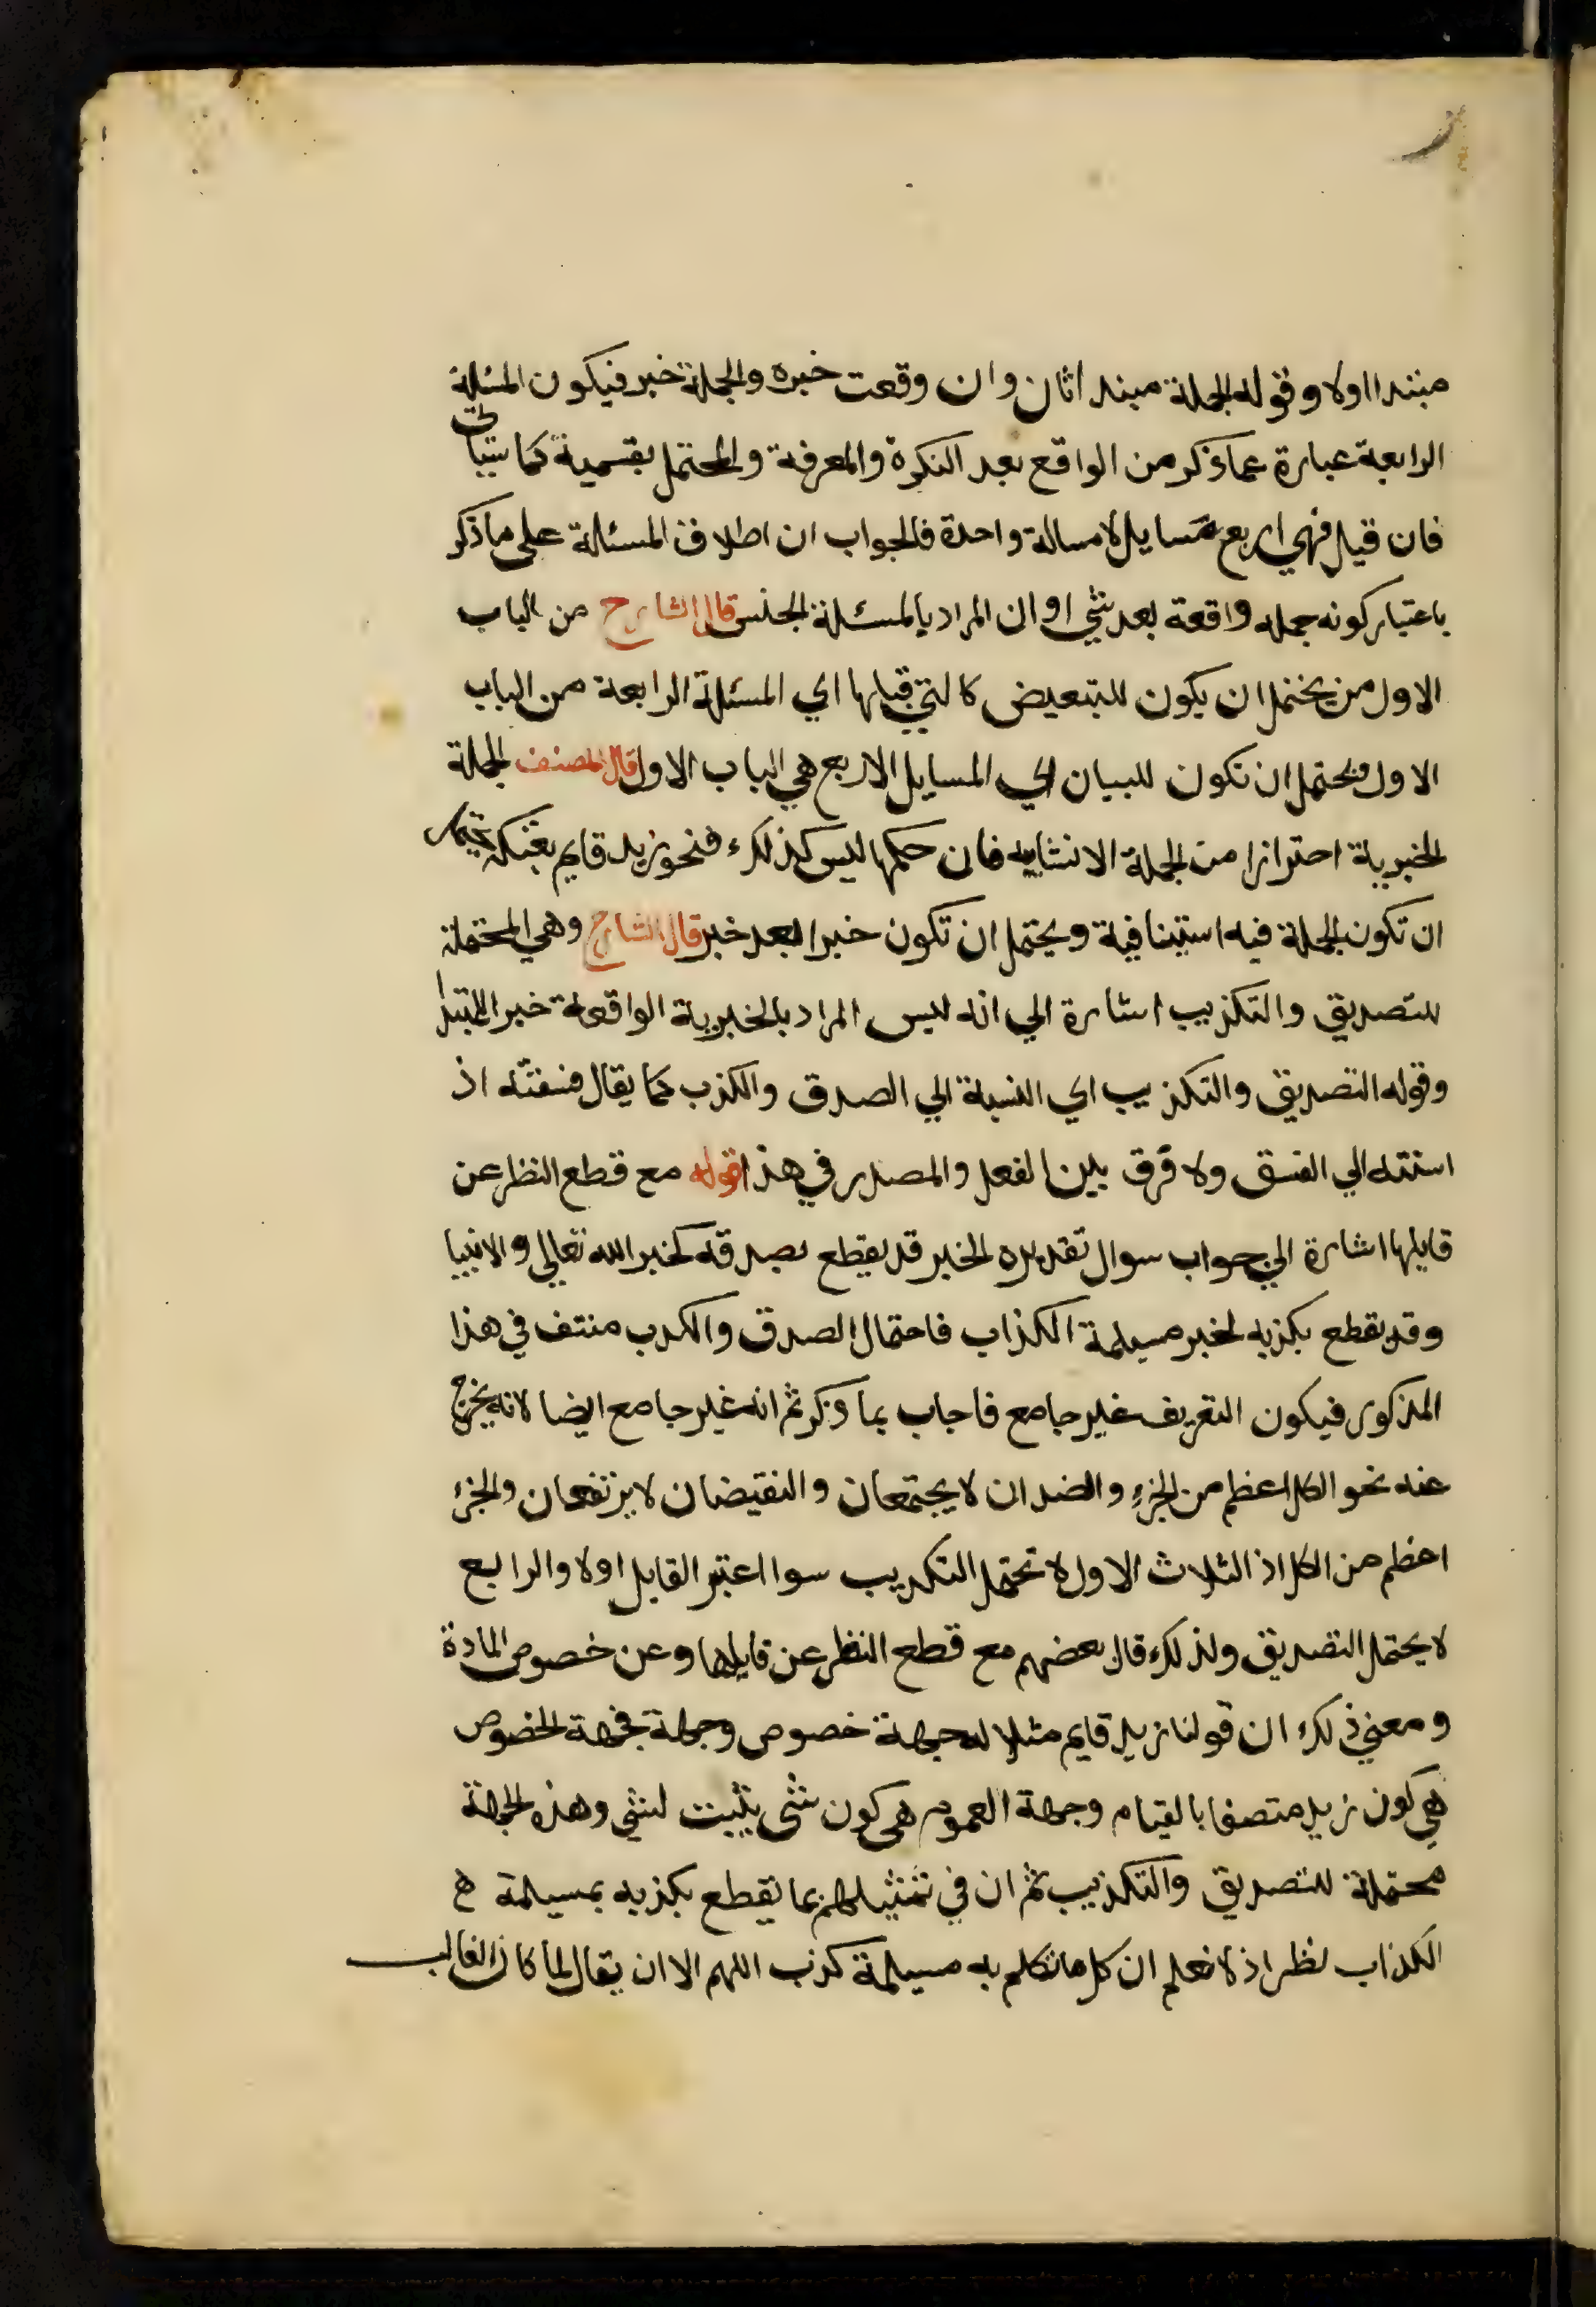 مبتدا اولا وقوله الجملة مبتدا ثان وان وقعت خبره والجملة خبر فيكون المسئلة
الرابعة عبارة عما ذكر من الواقع بعد النكرة والمعرفة والمحتمل بقسمية كما سياتى
فان قيل فهي اربع مسايل لا مسالة واحدة فالجواب ان اطلاق المسئلة على ما ذكر
باعتبار كونه جمله واقعة بعد شي او ان المراد بالمسئلة الجنس قال الشارح من الباب
الاول من يحتمل ان يكون للتبعيض كالتي قبلها اي المسئلة الرابعة من الباب
الاول ويحتمل ان تكون للبيان اي المسايل الاربع هي الباب الاول قال المصنف الجملة
الخبرية احترازا من الجملة الانشاييه فان حكمها ليس كذلك فنحو زيد قايم يحتمل
ان تكون الجملة فيه استينافية ويحتمل ان تكون خبرا بعد خبر قال الشارح وهي المحتملة
للتصديق والتكذيب اشارة الي انه ليس المراد بالخبرية الواقعة خبرا للمبتدا
وقوله التصديق والتكذيب اي النسبة الي الصدق والكذب كما يقال فسقته اذ
اسنته الي الفسق ولا فرق بين الفعل والمصدر في هذا قوله مع قطع النظر عن
قايلها اشارة الي جواب سوال تقديره الخبر قد يقطع بصدقه كخبر الله تعالي والانبيا
وقد يقطع بكذبه لخبر مسيلمة الكذاب فاحتمال الصدق والكدب منتف في هذا
المذكور فيكون التعريف غير جامع فاجاب بما ذكر ثم انه غير جامع ايضا لانه يخرج
عنه نحو الكل اعظم من الجزء والضدان لا يجتمعان والنقيضان لا يرتفعان والجزء
اعظم من الكل اذ الثلاث الاول لا تحتمل التكديب سوا اعتبر القايل اولا والرابع
لا يحتمل التصديق ولذلك قال بعضهم مع قطع النظر عن قايلها وعن خصوص المادة
ومعني ذلك ان قولنا زيد قايم مثلا له جهة خصوص وجهة فجهة الخصوص
هي كون زيد متصفا بالقيام وجهة العموم هى كون شى يثبت لشي وهذه الجهة
محتملة للتصديق والتكذيب ثم ان في تمثيلهم بما يقطع بكذبه بمسيلمة
الكذاب نظر اذ لا نعلم ان كل ما تكلم به مسيلمة كذب اللهم الا ان يقال لما كان الغالب